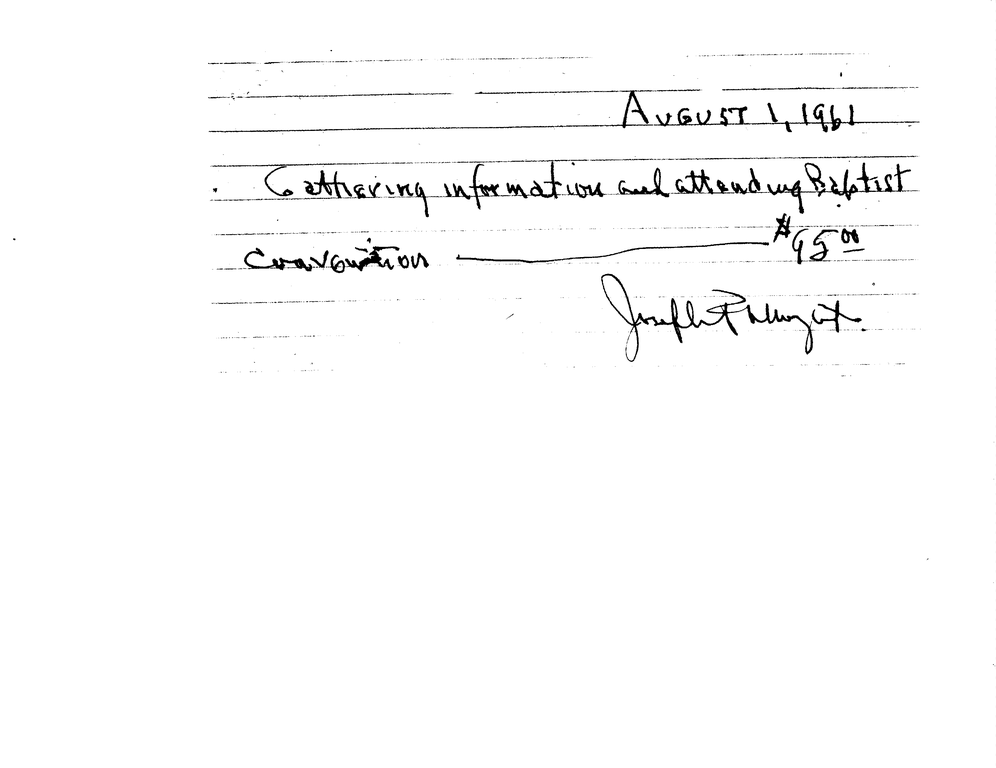 AUGUST 1, 1961
Gathering information and attending Baptist
Convention $95.00
Joseph